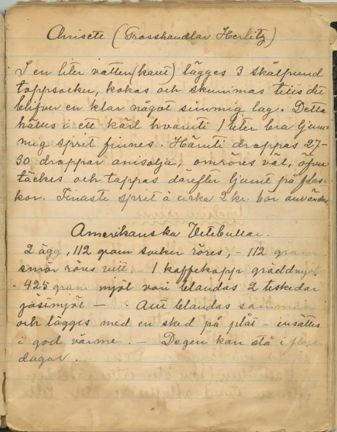 Anisete (Grosshandlar Herlitz)
I en liter vatten (hett) lägges 3 skålpund
toppsocker, kokas och skummas tills det
blifver en klar något simmig lag. Detta
hälles i ett kärl hvaruti 1 liter bra ljum-
mig sprit finnes. Häruti droppas 27-
30 droppar anisolja, omröres väl, öfver
täckes och tappas därefter ljumt på flas-
kor. Finaste sprit à cirka 2 kr. bör användas
Amerikanska Vetebullar.
2 ägg, 112 gram socker röres, - 112 gram
smör röres 1 kaffekopp grädde,
- 425 gram mjöl vari blandas 2 teskedar
gäsmjöl — Allt blandas samman
och lägges med en sked på plåt - insättes
i god värme. — Degen kan stå i flere
dagar.